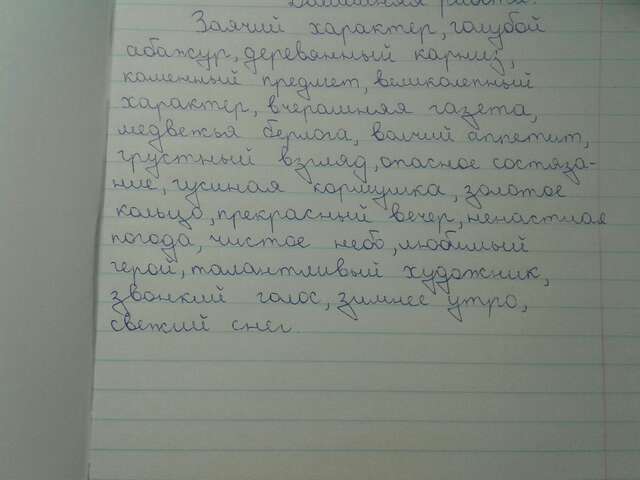 Домашняя работа.
Заячий характер, голубой
абажур, деревянный карниз,
каменный предмет, великолепный
характер, вчерашняя газета,
медвежья берлога, волчий аппетит,
грустный взгляд, опасное состяза-
ние, гусиная кормушка, золотое
кольцо, прекрасный вечер, ненастная
погода, чистое небо, любимый
герой, талантливый художник,
звонкий голос, зимнее утро,
свежий снег.